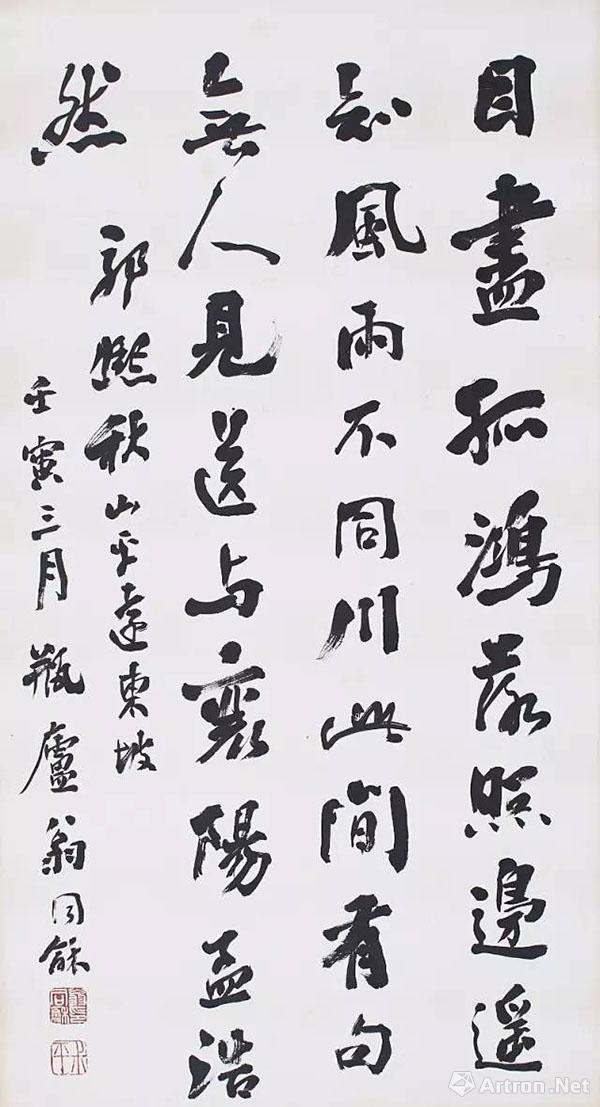 目盡孤鴻落照邊遥
知風雨不同川此間有句
無人見送与襄陽孟浩
然
郭熙秋山平遠東坡
壬寅三月瓶廬翁同龢
Artron.Net